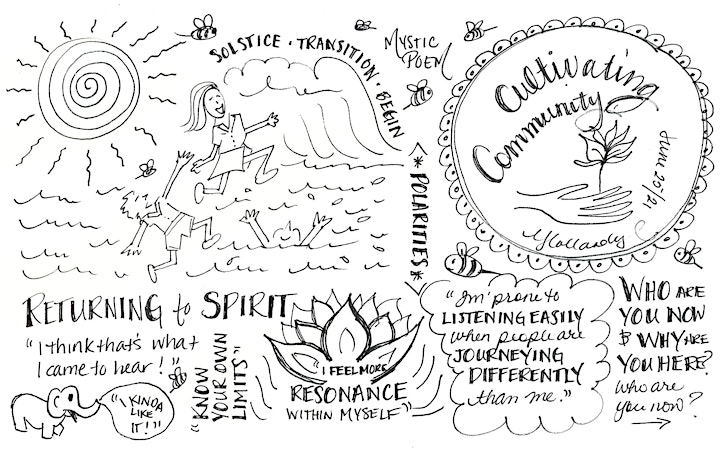 SOLSTICE · TRANSITION · BEGIN
MYSTIC
POEM
Cultivating
Community
June 20/21
* POLARITIES *
RETURNING to SPIRIT
"I think that's what
I came to hear!"
"I KINDA
LIKE
IT!"
"KNOW
YOUR OWN
LIMITS"
"I FEEL MORE
RESONANCE
WITHIN MYSELF"
"I'm prone to
LISTENING EASILY
when people are
JOURNEYING
DIFFERENTLY
than me."
WHO ARE
YOU NOW
& WHY ARE
YOU HERE?
Who are
you now?